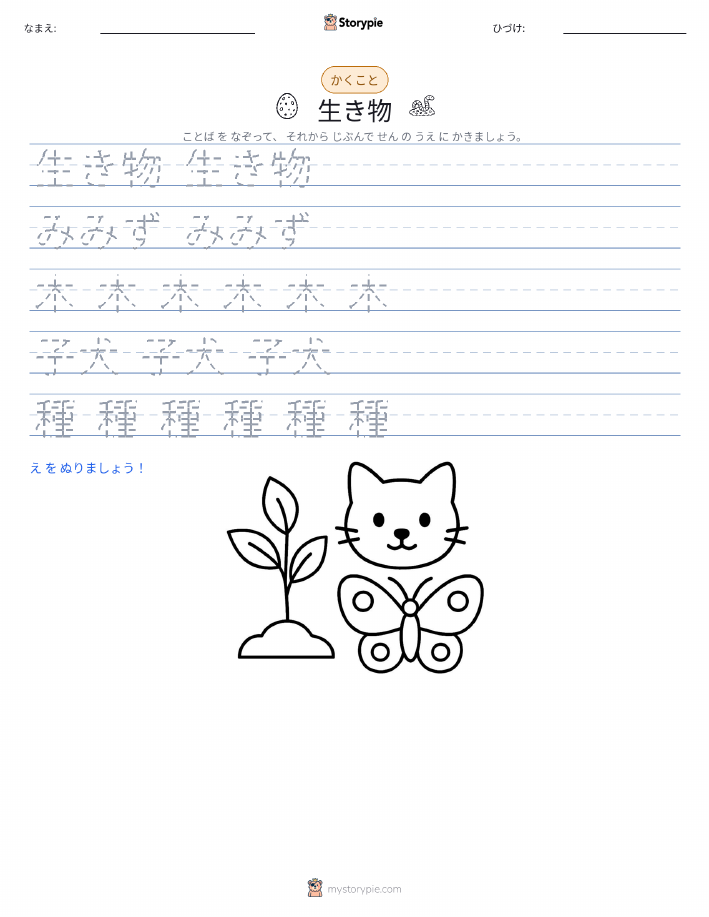 なまえ:
Storypie
ひづけ:
かくこと
生き物
ことば を なぞって、 それから じぶんで せん の うえ に かきましょう。
生き物 生き物
みみず みみず
木 木 木 木 木 木
子犬 子犬 子犬
種 種 種 種 種 種
え を ぬりましょう！
mystorypie.com